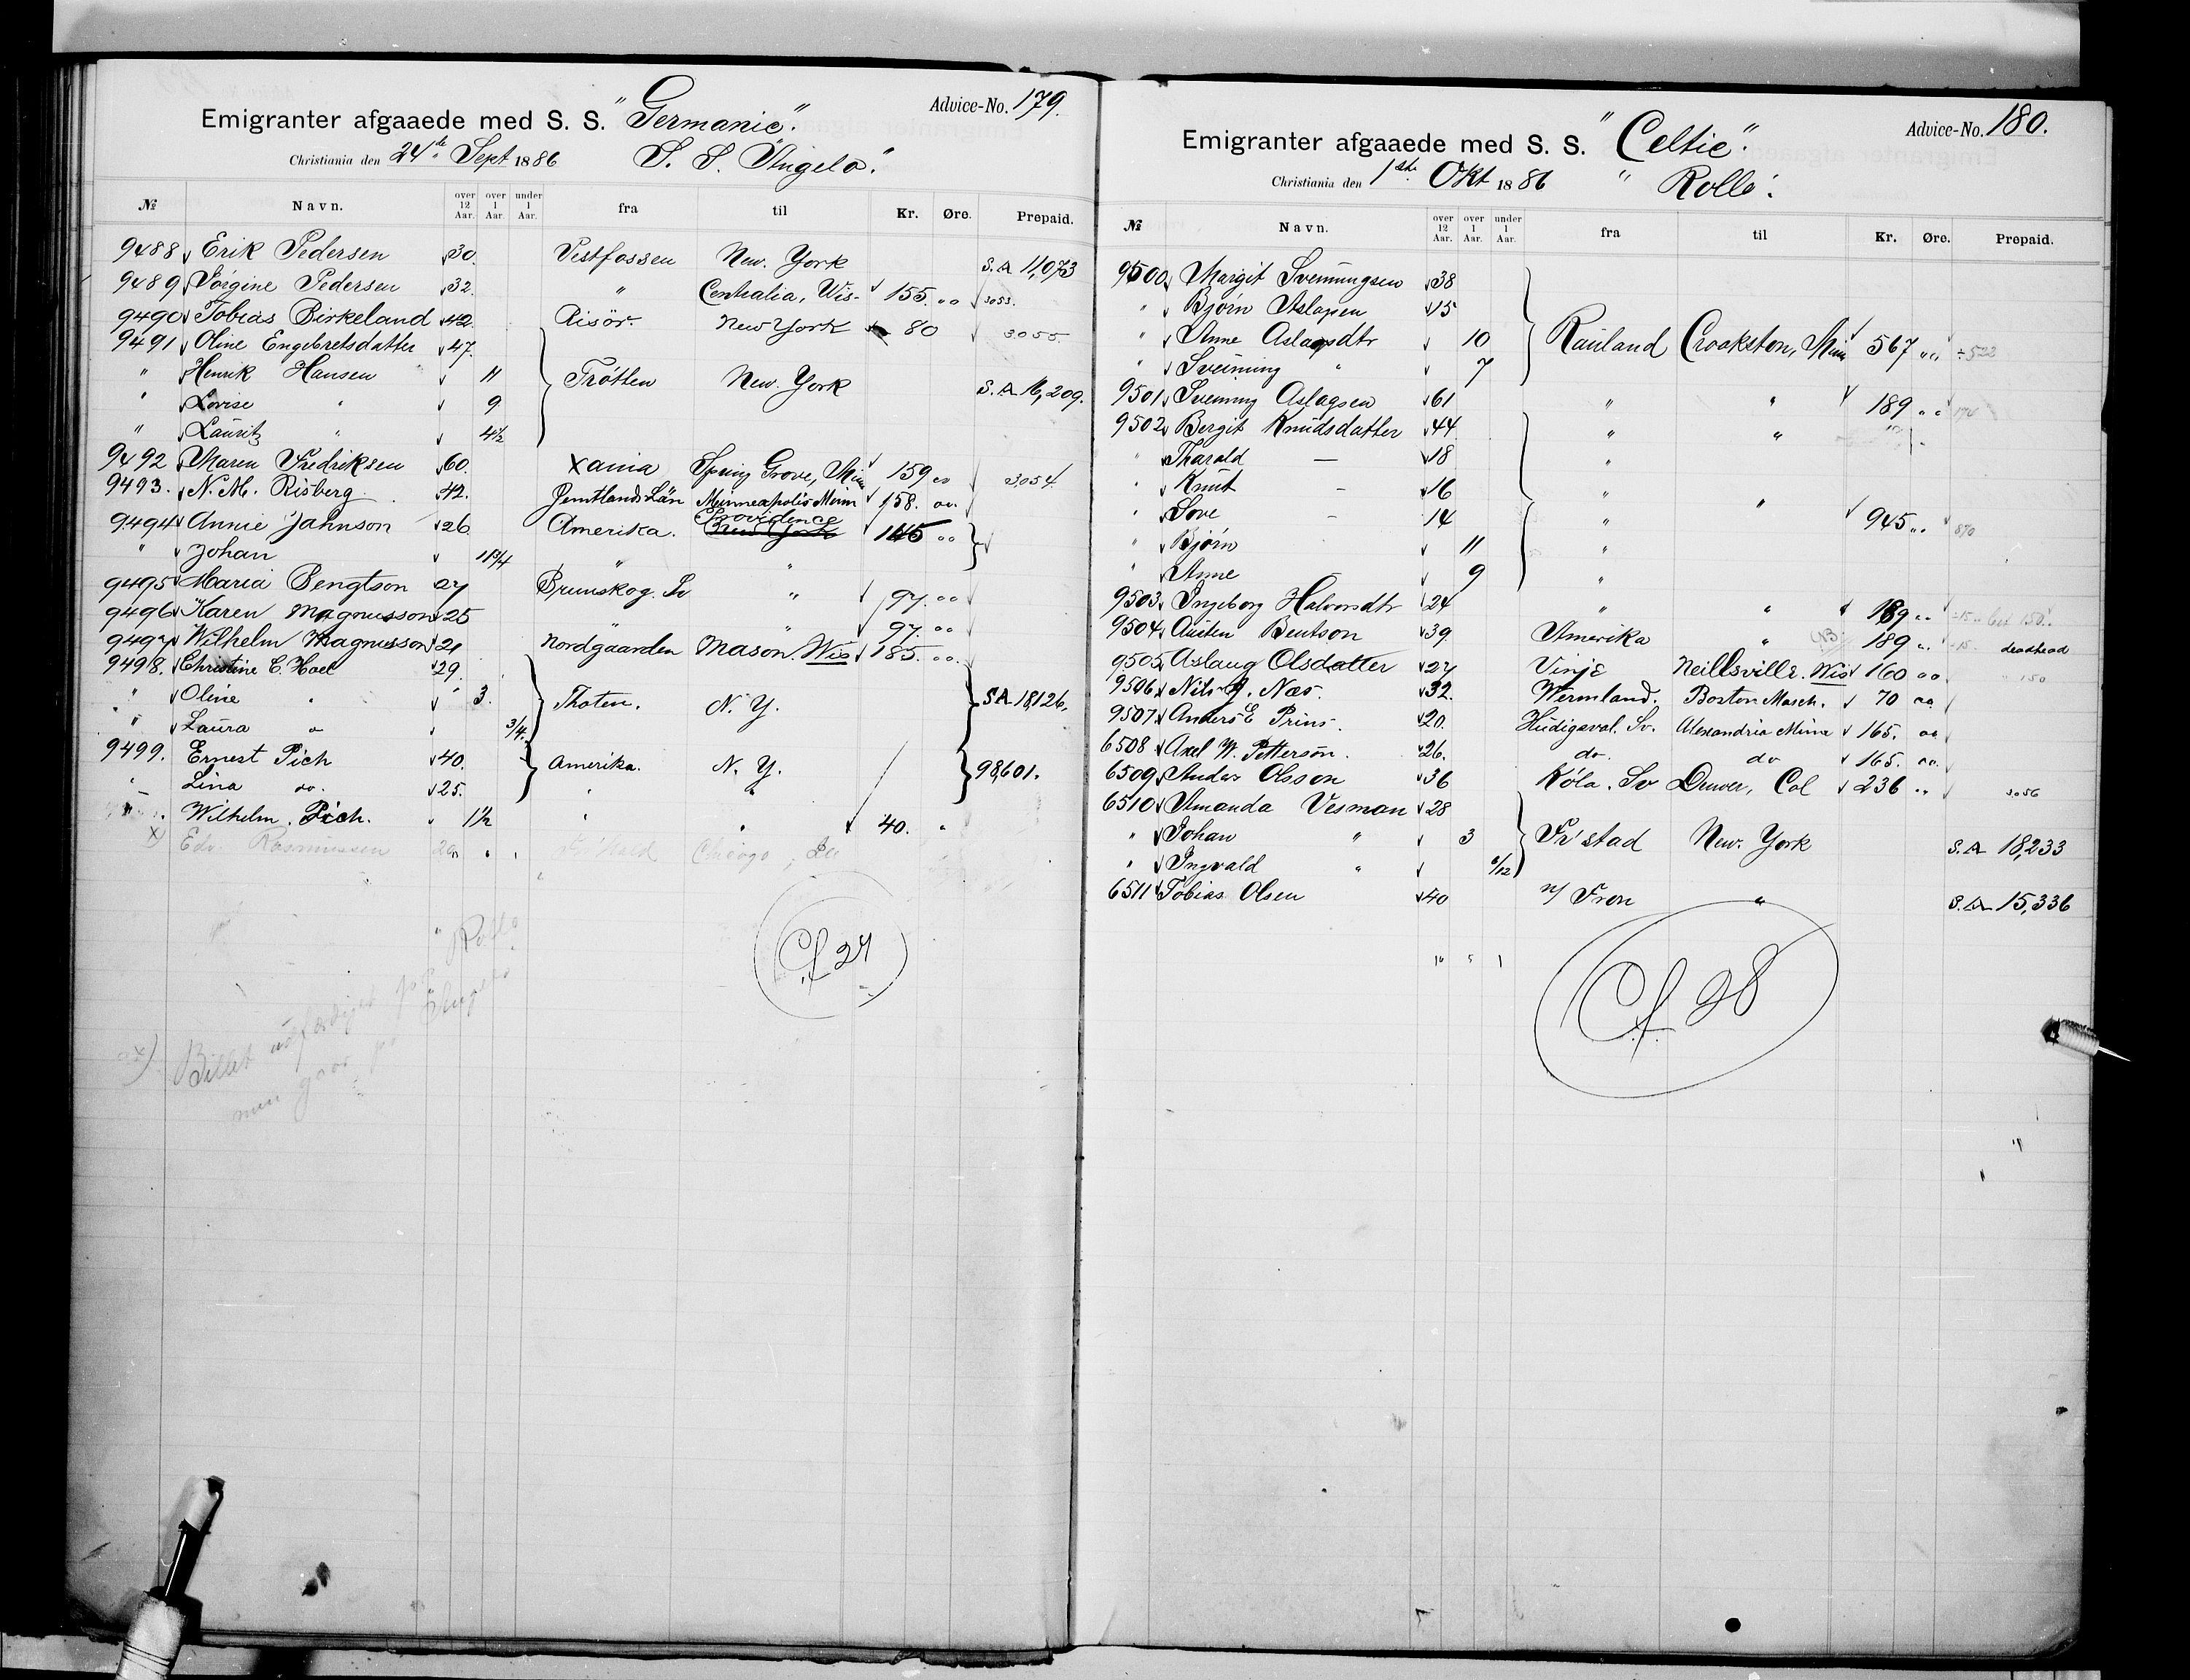 Advice-No. 179.
Emigranter afgaaede med S. S. "Germanic".
Christiania den 24de Sept 1886 S. S. "Angelo".
No Navn. over 12 Aar. over 1 Aar. under 1 Aar. fra til Kr. Øre. Prepaid.
9488 Erik Pedersen 30. Vestfossen New. York S.A 11,073
9489 Jörgine Pedersen 32. " Centralia, Wis- 155. " " 3053.
9490 Tobias Birkeland 42. Risör. New York 80 3055.
9491 Oline Engebretsdatter 47.
" Henrik Hansen 11 Trötten New. York S.A 16,209.
" Lovise " 9
" Lauritz " 4½
9492 Maren Fredriksen 60. Xania Spring Grove, Min 159 oo 3054
9493. N. M. Risberg. 42. Jemtlands Län Minneapolis Minn 158. oo.
9494 Annie Johnson 26 Amerika. Providence New York 145 oo
" Johan 1 " "
9495 Maria Bengtson 27 Brunskog. Sv " 97. oo
9496 Karen Magnusson 25 " " 97. oo
9497 Wilhelm Magnusson 21 Nordgaarden Mason. Wis 185. oo.
9498. Christine C. Hoel 29.
" Oline " 3. Thoten. N. Y. SA 18,126.
" Laura " 3/4.
9499. Ernest Pich 40. Amerika. N. Y. 98,601.
" Lina do. 25. " "
" Wilhelm. Pich. 1½ " " 40. "
x) Edv. Rasmussen Chicago, Ill
Cf 27
x) Billet udfærdiget pr. "Rollo"
men gaar pr Angelo
Advice-No. 180.
Emigranter afgaaede med S. S. "Celtic".
Christiania den 1ste Okt 1886 " Rollo".
No Navn. over 12 Aar. over 1 Aar. under 1 Aar. fra til Kr. Øre. Prepaid.
9500 Margit Sveinungsen 38
" Bjørn Aslagsen 15
" Anne Aslagsdtr 10 Rauland Crookston, Minn 567 " " ÷522
" Sveinung " 7
9501 Sveinung Aslagsen 61 " " 189 " " 174
9502 Bergit Knudsdatter 44 " "
" Tharald — 18 "
" Knut — 16 " "
" Tove — 14 " 945 " " 870
" Bjørn 11 "
" Anne 9 "
9503 Ingeborg Halvorsdtr 24 " " 189 " "
9504 Austen Bentson 39. Amerika " 189 " " deadhead
9505 Aslaug Olsdatter 27 Vinje Neillsville. Wis 160 oo 150
9506 Nils J. Næs. 32. Wermland. Boston Masch. 70 oo
9507 Anders E Prins. 20. Hudigsval. Sv. Alexandria Minn 165. oo
6508 Axel W. Pettersön. 26. do. do 165. oo.
6509 Anders Olsson 36 Köla. Sv Denver, Col 236 " " 3056
6510 Amanda Vesman 28
" Johan " 3 Fr'stad New. York S.A 18,233
" Ingvald " 6/12
6511 Tobias Olsen 40 n/ Fron " S.A 15,336
Cf 28